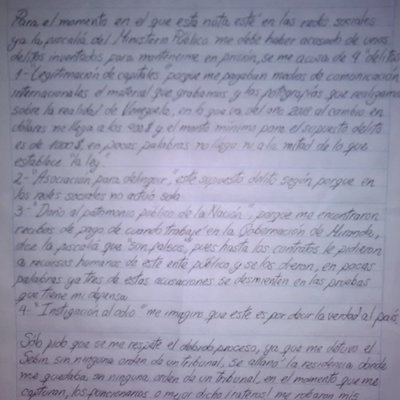 Para el momento en el que esta nota esté en las redes sociales
ya la fiscalía del Ministerio Público me debe haber acusado de unos
delitos inventados para mantenerme en prisión, se me acusa de 4 "delitos"
1- Legitimación de capitales porque me pagaban medios de comunicación
internacionales el material que grabamos y las fotografías que realizamos
sobre la realidad de Venezuela, en lo que va del año 2018 al cambio en
dólares no llega a los y el monto mínimo para el supuesto delito
es de en pocas palabras no llega ni a la mitad de lo que
establece "la ley".
2- "Asociación para delinquir", este supuesto delito según porque en
las redes sociales no actúo solo
3- "Daño al patrimonio público de la Nación", porque me encontraron
recibos de pago de cuando trabajé en la Gobernación de Miranda,
dice la fiscalía que "son falsos", pues hasta los contratos le pidieron
a recursos humanos de este ente público y se los dieron, en pocas
palabras ya tres de estas acusaciones se desmienten en las pruebas
que tiene mi defensa
4- "Instigación al odio" me imagino que este es por decir la verdad al país
Sólo pido que se me respete el debido proceso, ya que me detuvo el
Sebin sin ninguna orden de un tribunal, se allanó la residencia donde
me quedaba, sin ninguna orden de un Tribunal, en el momento que me
capturan, los funcionarios o mejor dicho me robaron mis